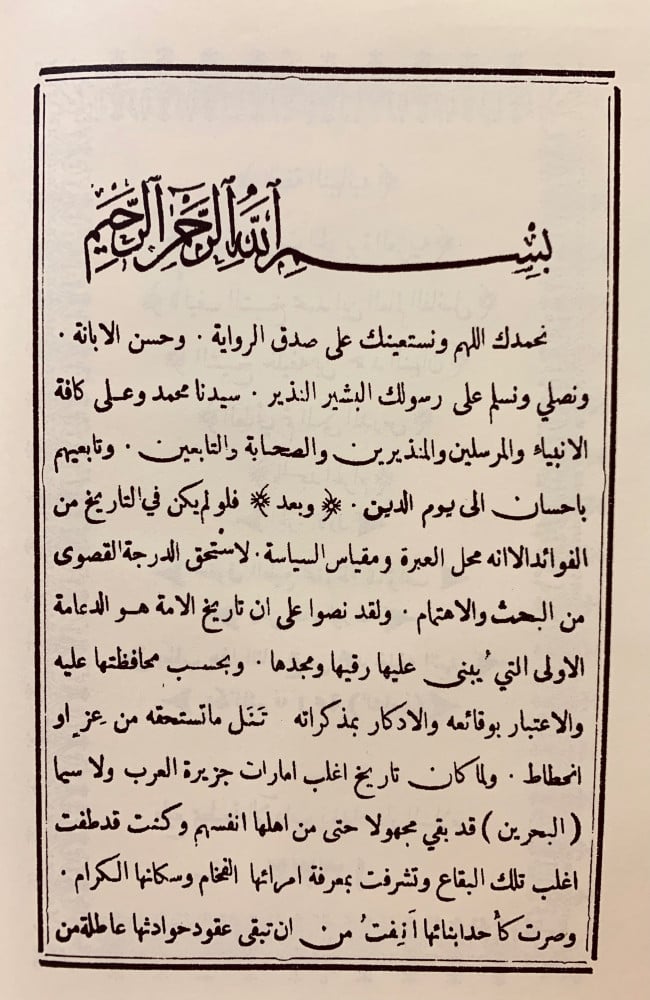 بِسْمِ اللَّهِ الرَّحْمَنِ الرَّحِيمِ
نحمدك اللهم ونستعينك على صدق الرواية . وحسن الابانة .
ونصلي ونسلم على رسولك البشير النذير . سيدنا محمد وعلى كافة
الانبياء والمرسلين والمنذيرين والصحابة والتابعين . وتابعيهم
باحسان الى يوم الدين . ﴿ وبعد ﴾ فلو لم يكن في التاريخ من
الفوائد الا انه محل العبرة ومقياس السياسة . لاستحق الدرجة القصوى
من البحث والاهتمام . ولقد نصوا على ان تاريخ الامة هو الدعامة
الاولى التي يُبنى عليها رقيها ومجدها . وبحسب محافظتها عليه
والاعتبار بوقائعه والادكار بمذكراته تَنَل ماتستحقه من عِزٍ او
انحطاط . ولما كان تاريخ اغلب امارات جزيرة العرب ولا سيما
( البحرين ) قد بقي مجهولا حتى من اهلها انفسهم وكنت قد طفت
اغلب تلك البقاع وتشرفت بمعرفة امرائها الفخام وسكانها الكرام .
وصرت كأحد ابنائها اَنِفتُ من ان تبقى عقود حوادثها عاطلة من